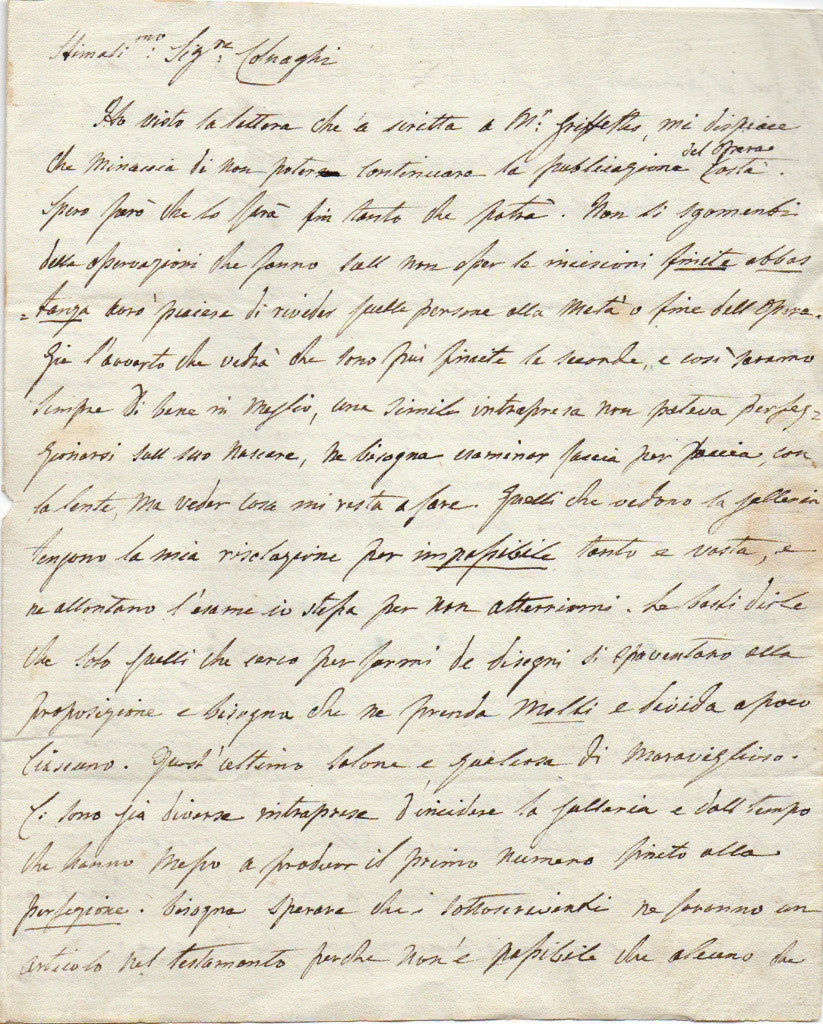 Stimatis.mo Sig.re Colnaghi
Ho visto la lettera che à scritta a M.r Griffetts, mi dispiace
che minaccia di non potere continuara la publicazione del Opera Costà.
Spero però che lo farà fin tanto che potrà. Non si sgomenti
della osservazioni che fanno sull non esser le incisioni finite abbas
=tanza avrò piacere di riveder quelle persone alla Metà o fine dell'Opera.
Già l'averto che vedrà che sono più finite le seconde, e così saranno
sempre di bene in Meglio, una simile intrapresa non poteva perfez=
zionarsi sull suo nascere, ne bisogna esaminar faccia per faccia, con
la lente, Ma veder cosa mi resta a fare. Quelli che vedono la galleria
tengono la mia risoluzione per impossibile tanto e vasta, e
ne allontano l'esame io stessa per non atterrirmi. Le basti dirle
che solo quelli che cerco per farmi de disegni si spaventano alla
proposizione e bisogna che ne prenda Molti e divida a poco
Ciascuno. Quest'ultimo Salone e qualcosa di Maraviglioso.
Ci sono già diverse intraprese d'incidere la Gallaria e dall tempo
che hanno Messo a produr il primo numero finito alla
perfezione. bisogna sperare che i sottoscriventi ne faranno un
articolo nel testamento perche non'è possibile che alcuno de